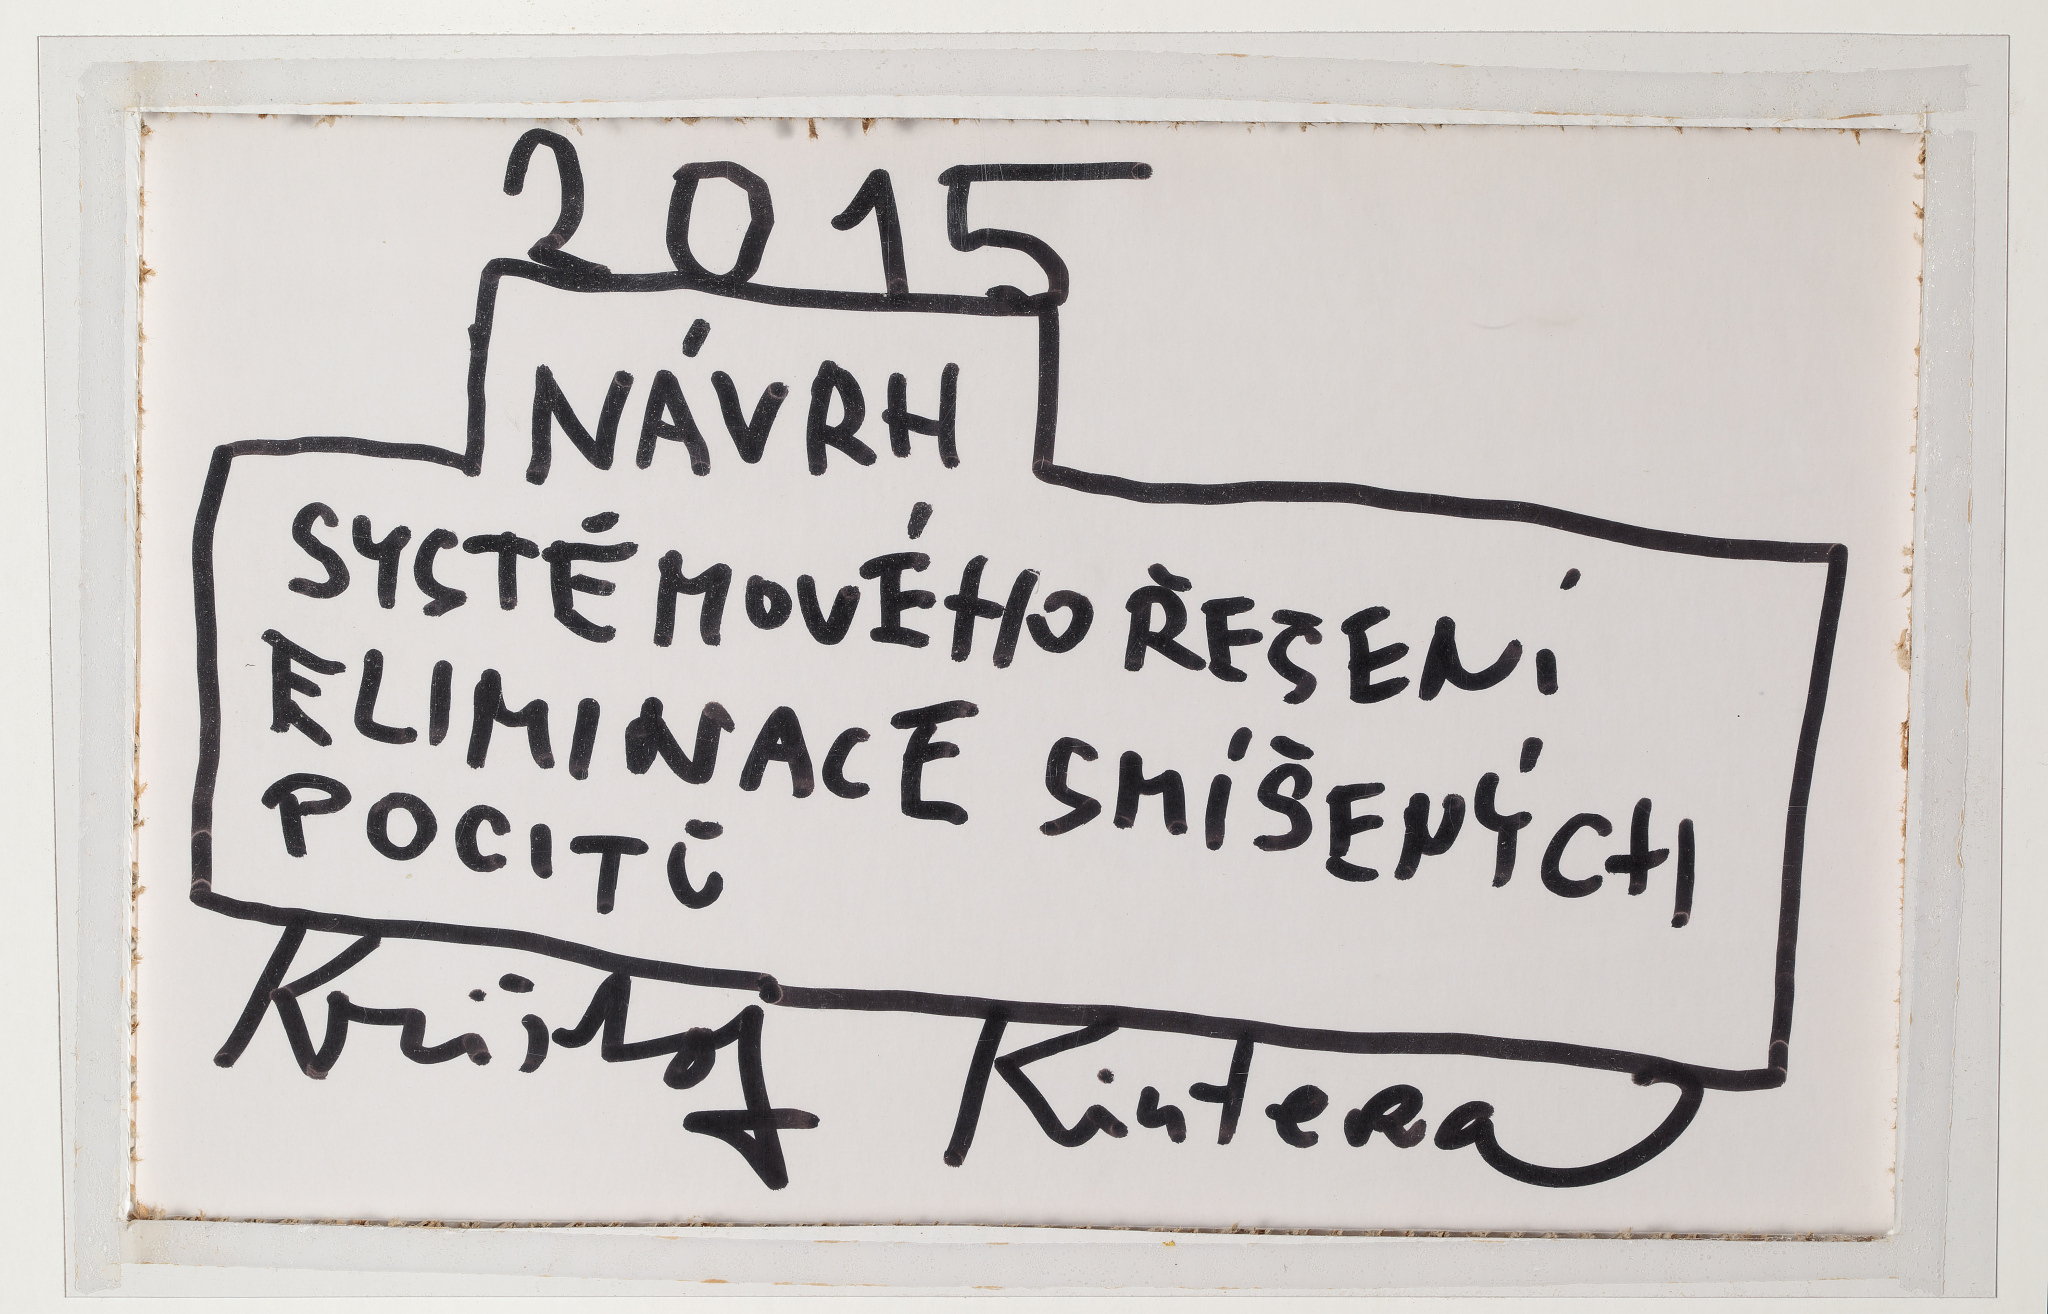 2015
NÁVRH
SYSTÉMOVÉHO ŘEŠENÍ
ELIMINACE SMÍŠENÝCH
POCITŮ
Krištof Kintera